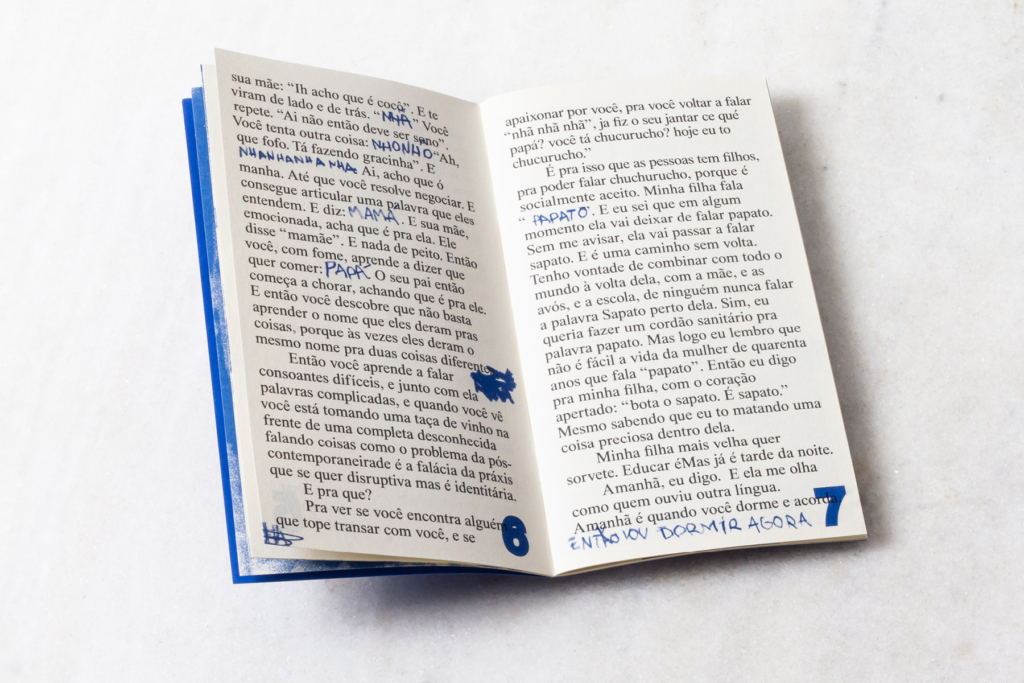 sua mãe: “Ih acho que é cocô”. E te
viram de lado e de trás. “NHÃ” Você
repete. “Ai não então deve ser sono”.
Você tenta outra coisa: NHONHO “Ah,
que fofo. Tá fazendo gracinha”. E
NHANHANHANHA Ai, acho que ó
manha. Até que você resolve negociar. E
consegue articular uma palavra que eles
entendem. E diz: MAMÁ. E sua mãe,
emocionada, acha que é pra ela. Ele
disse “mamãe”. E nada de peito. Então
você, com fome, aprende a dizer que
quer comer: PAPÁ O seu pai então
começa a chorar, achando que é pra ele.
E então você descobre que não basta
aprender o nome que eles deram pras
coisas, porque às vezes eles deram o
mesmo nome pra duas coisas diferentes
Então você aprende a falar
consoantes difíceis, e junto com ela
palavras complicadas, e quando você vê
você está tomando uma taça de vinho na
frente de uma completa desconhecida
falando coisas como o problema da pós-
contemporaneirade é a falácia da práxis
que se quer disruptiva mas é identitária.
E pra que?
Pra ver se você encontra alguém
que tope transar com você, e se
6
apaixonar por você, pra você voltar a falar
“nhã nhã nhã”, ja fiz o seu jantar ce qué
papá? você tá chucurucho? hoje eu to
chucurucho.”
É pra isso que as pessoas tem filhos,
pra poder falar chuchurucho, porque é
socialmente aceito. Minha filha fala
“PAPATO”. E eu sei que em algum
momento ela vai deixar de falar papato.
Sem me avisar, ela vai passar a falar
sapato. E é uma caminho sem volta.
Tenho vontade de combinar com todo o
mundo à volta dela, com a mãe, e as
avós, e a escola, de ninguém nunca falar
a palavra Sapato perto dela. Sim, eu
queria fazer um cordão sanitário pra
palavra papato. Mas logo eu lembro que
não é fácil a vida da mulher de quarenta
anos que fala “papato”. Então eu digo
pra minha filha, com o coração
apertado: “bota o sapato. É sapato.”
Mesmo sabendo que eu to matando uma
coisa preciosa dentro dela.
Minha filha mais velha quer
sorvete. Educar éMas já é tarde da noite.
Amanhã, eu digo. E ela me olha
como quem ouviu outra língua.
Amanhã é quando você dorme e acorda.
ENTÃO VOU DORMIR AGORA
7